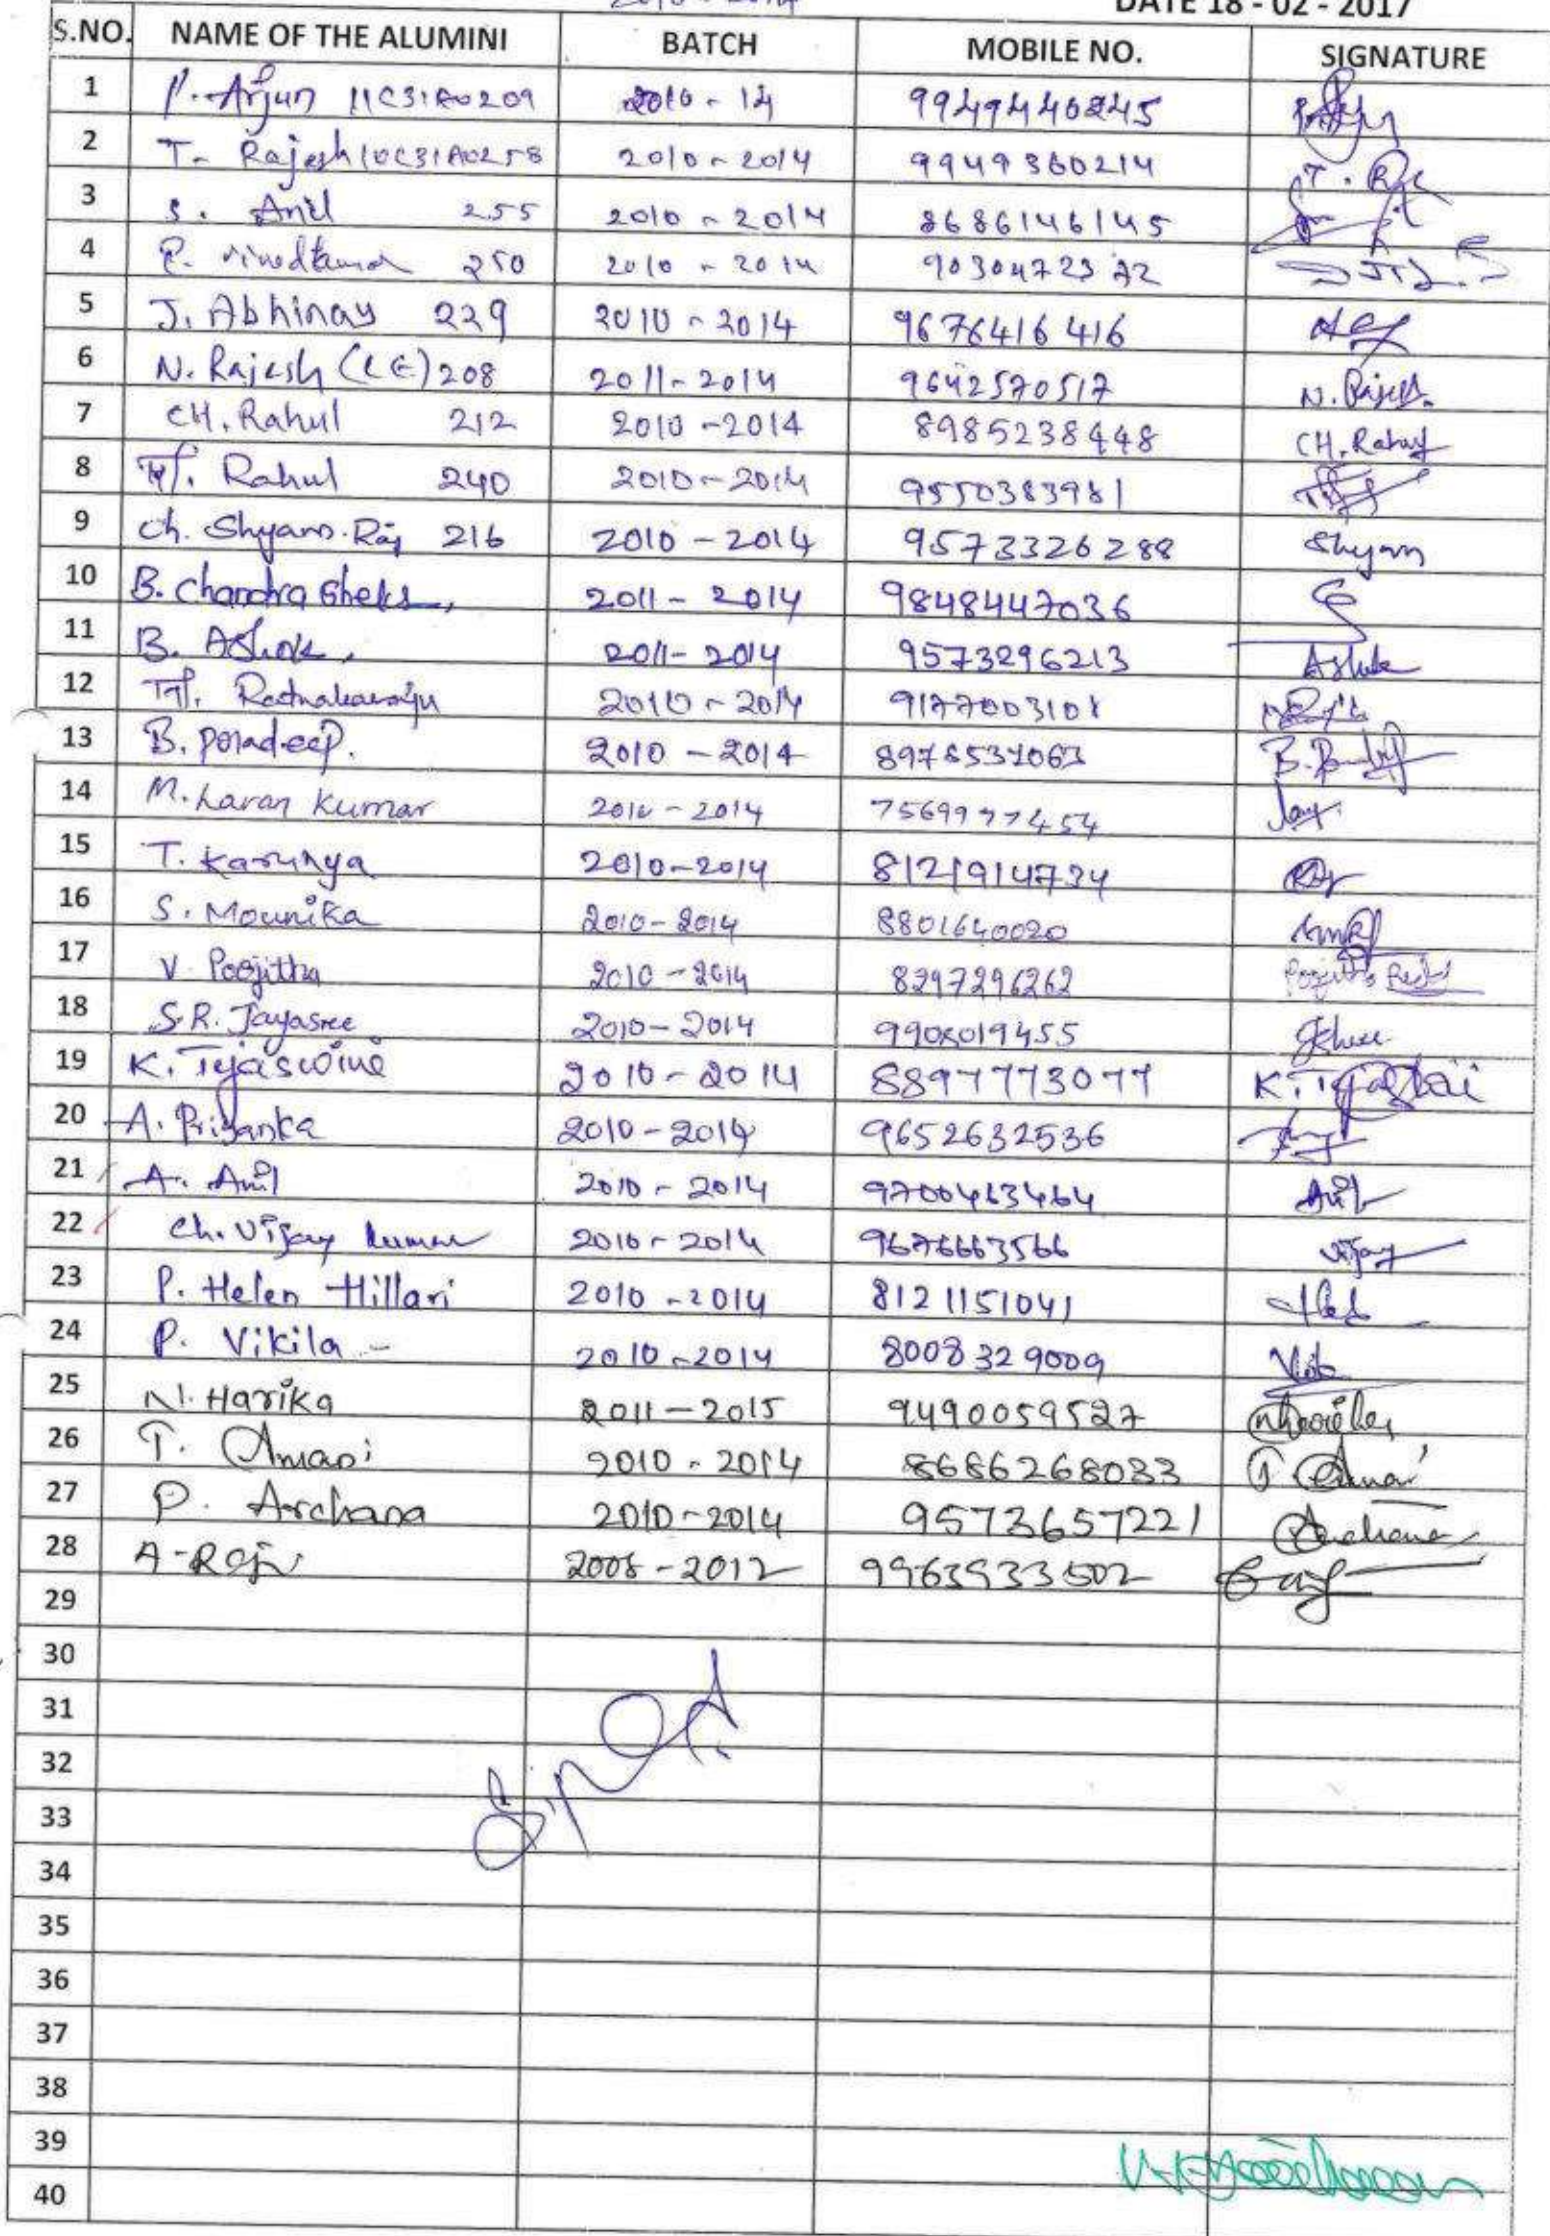 2010-2014 DATE 18 - 02 - 2017
S.NO. NAME OF THE ALUMINI BATCH MOBILE NO. SIGNATURE
1 P. Arjun 11C31A0209 2010-14 9949440245
2 T. Rajesh 10C31A0258 2010-2014 9949360214
3 S. Anil 255 2010-2014 8686146145
4 250 2010-2014 9030472372
5 J. Abhinay 229 2010-2014 9676416416
6 N. Rajesh (LE) 208 2011-2014 9642570517 N. Rajesh
7 CH. Rahul 212 2010-2014 8985238448 CH. Rahul
8 Rahul 240 2010-2014 9550383981
9 Ch. Shyam Raj 216 2010-2014 9573326288 Shyam
10 B. Chandra 2011-2014 9848447036
11 B. Ashok, 2011-2014 9573296213 Ashok
12 2010-2014 9177003101
13 B. Poradeep. 2010-2014
14 M. Laran Kumar 2010-2014 7569977454
15 T. Karunya 2010-2014 8121914734
16 S. Mounika 2010-2014 8801640020
17 V. Poojitha 2010-2014 8297296262
18 S.R. Jayasree 2010-2014
19 K. Tejaswine 2010-2014 8897773077
20 A. Priyanka 2010-2014 9652632536
21 A. Anil 2010-2014 9700463464 Anil
22 Ch. Vijay kumar 2010-2014 9676663566 Vijay
23 P. Helen Hillari 2010-2014 8121151041
24 P. Vikila 2010-2014 8008329009
25 N. Harika 2011-2015 9490059527
26 T. Amani 2010-2014 8686268083
27 P. Archana 2010-2014 9573657221 Archana
28 A-Raju 2008-2012 9963933502
29
30
31
32
33
34
35
36
37
38
39
40